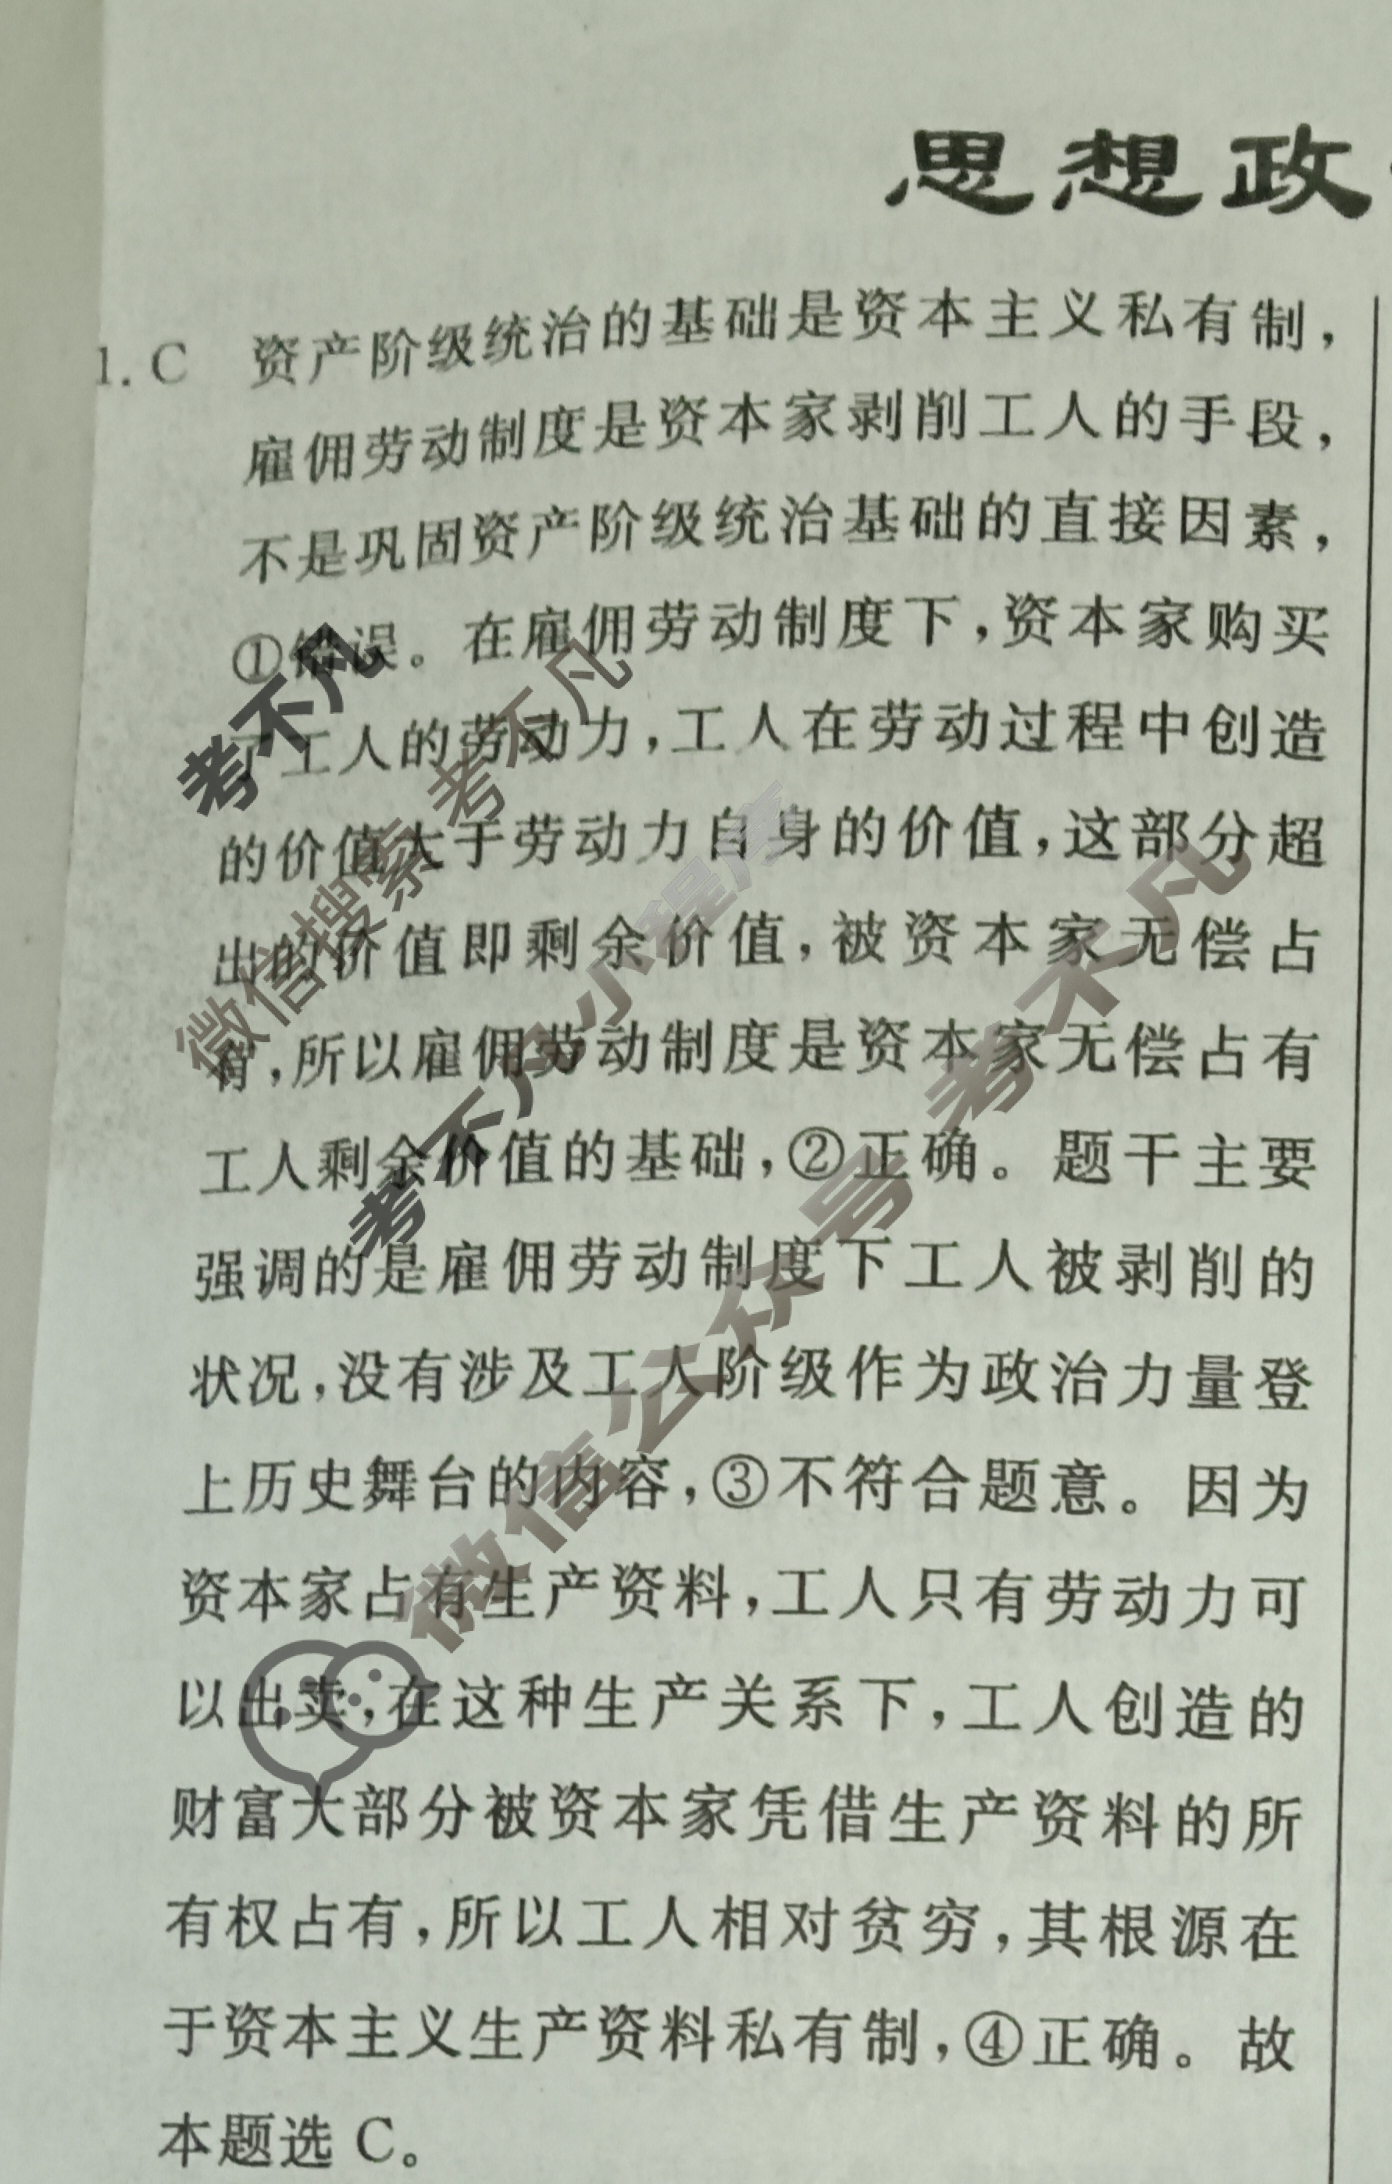 思想政
1. C 资产阶级统治的基础是资本主义私有制，
雇佣劳动制度是资本家剥削工人的手段，
不是巩固资产阶级统治基础的直接因素，
①错误。在雇佣劳动制度下，资本家购买
了工人的劳动力，工人在劳动过程中创造
的价值大于劳动力自身的价值，这部分超
出的价值即剩余价值，被资本家无偿占
有，所以雇佣劳动制度是资本家无偿占有
工人剩余价值的基础，②正确。题干主要
强调的是雇佣劳动制度下工人被剥削的
状况，没有涉及工人阶级作为政治力量登
上历史舞台的内容，③不符合题意。因为
资本家占有生产资料，工人只有劳动力可
以出卖，在这种生产关系下，工人创造的
财富大部分被资本家凭借生产资料的所
有权占有，所以工人相对贫穷，其根源在
于资本主义生产资料私有制，④正确。故
本题选 C。
考不凡
微信搜索 考不凡
考不凡小程序
微信公众号 考不凡